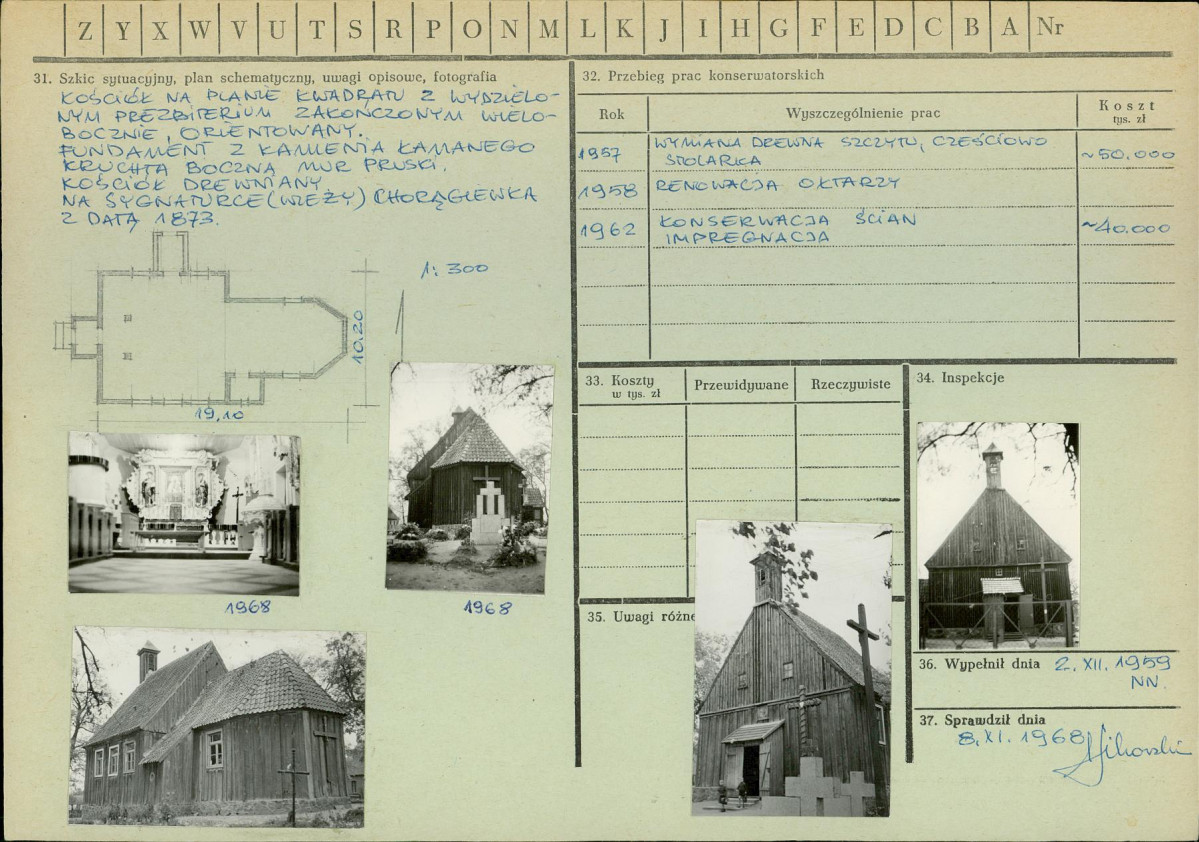 Z Y X W V U T S R P O N M L K J I H G F E D C B A Nr
31. Szkic sytuacyjny, plan schematyczny, uwagi opisowe, fotografia
KOŚCIÓŁ NA PLANIE KWADRATU Z WYDZIELO-
NYM PREZBITERIUM ZAKOŃCZONYM WIELO-
BOCZNIE, ORIENTOWANY.
FUNDAMENT Z KAMIENIA ŁAMANEGO
KRUCHTA BOCZNA MUR PRUSKI.
KOŚCIÓŁ DREWNIANY
NA SYGNATURCE (WIEŻY) CHORĄGIEWKA
Z DATĄ 1873.
1:300
10.20
19,10
1968
1968
32. Przebieg prac konserwatorskich
Rok Wyszczególnienie prac Koszt
tys. zł
1957 WYMIANA DREWNA SZCZYTU, CZEŚCIOWO ~50.000
STOLARKA
1958 RENOWACJA OŁTARZY
1962 KONSERWACJA ŚCIAN ~40.000
IMPREGNACJA
33. Koszty Przewidywane Rzeczywiste
w tys. zł
34. Inspekcje
35. Uwagi różne
36. Wypełnił dnia 2. XII. 1959
NN.
37. Sprawdził dnia
8. XI. 1968